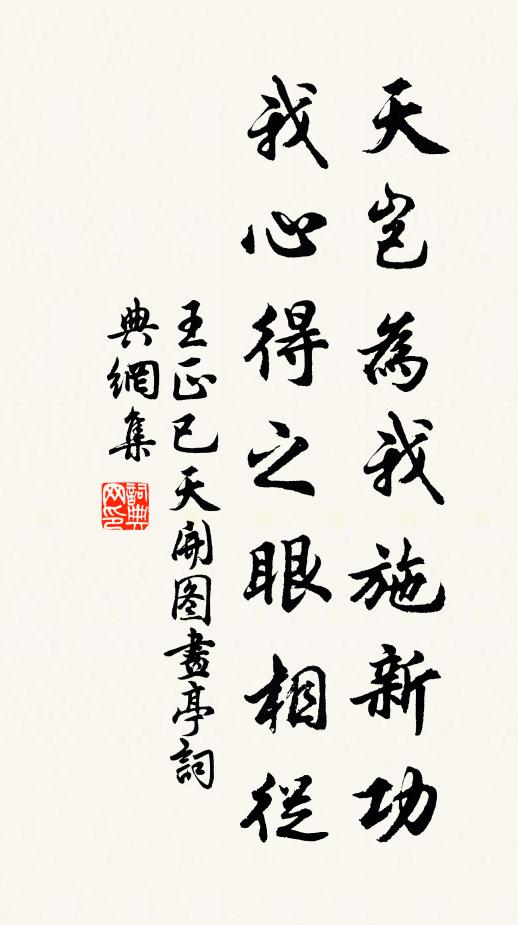 天豈為我施新功
我心得之眼相從
王正己天開图畫亭詞
典網集
詞典网印